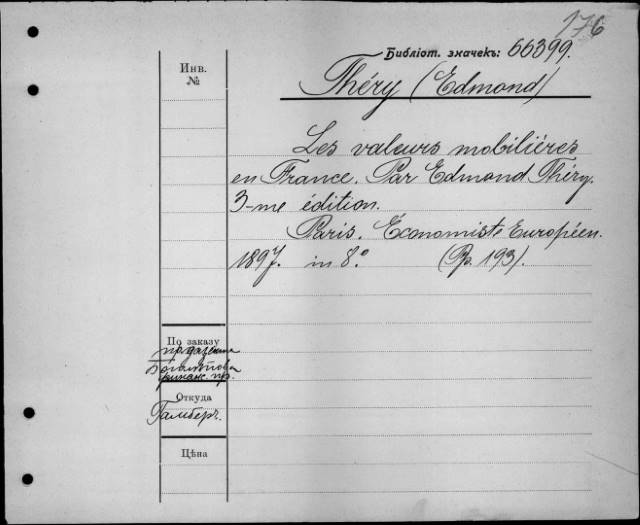 176
Библіот. значекъ: 66399.
Инв.
№
Théry (Edmond)
Les valeurs mobilières
en France. Par Edmond Théry.
3-me édition.
Paris. Économiste Européen.
1897. in 8.° (Pp. 193).
По заказу
Откуда
Гамберъ.
Цѣна